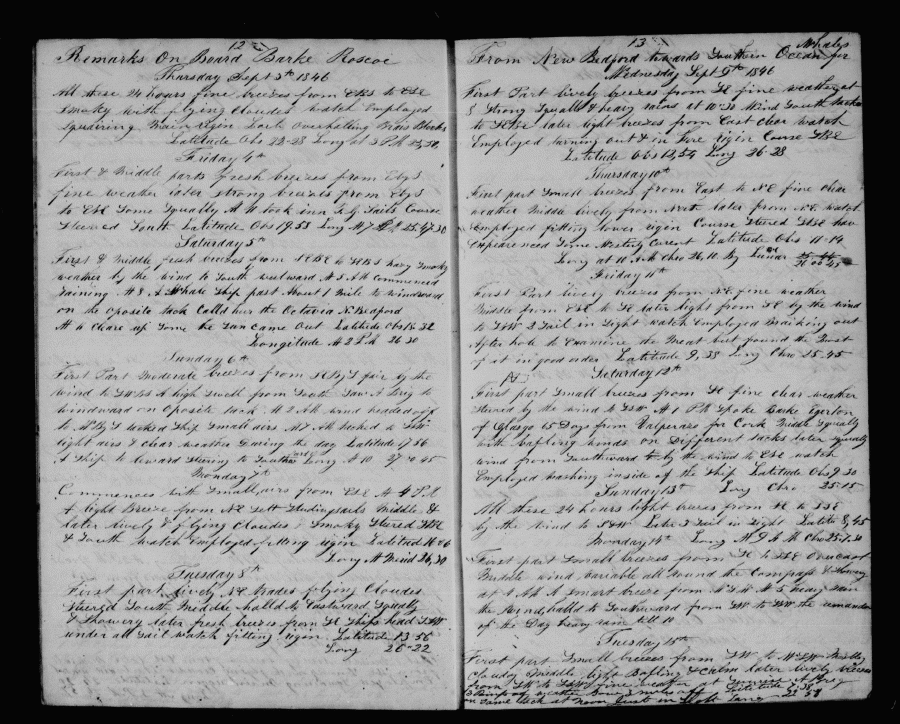 12
Remarks On Board Barke Roscoe
Thursday Sept 3th 1846
All these 24 hours fine breezes from EBS to ESE
Smoky with flying Cloudes watch Employed
Main Rigin Overhalling Blocks
Latitude Obs 22-28 Long at 3 P.M
Friday 4th
First & Middle parts fresh breezes from EbyS
fine weather later strong breezes from EbyS
to ESE Some Squally took inn Sails Course
Steared South Latitude Obs 19.53 Long
Saturday 5th
First & Middle fresh breezes from to hazy Smoky
weather by the wind to South westward At 5 A M commenced
raining At 8 A Whale Ship past About 1 Mile to windward
on the oposite tack Calld hur the Octavia N Bedford
At 10 Cleare up Some the Sun came Out Latitude Obs 18.32
Longitude At 2 P.M 26 30
Sunday 6th
First Part Moderate breezes from fair by the
wind to A high Swell from South Saw A Brig to
windward on Oposite tack At 2 A M wind headed off
to tacked Ship Small airs At 7 AM tacked to
light airs & Clear weather During the day Latitude 17 56
A Ship to leward Stearing to Southward Long A 10 27-0 45
Monday 7th
Commences with Small airs from ESE At 4 P.M
A light Breeze from NE Sett Studingsails Middle &
later lively & flying Cloudes & Smoky Steared
& South watch Employed fitting rigin Latitud 16-06
Long At Merid 26,30
Tuesday 8th
First part lively NE trades flying Cloudes
Steered South Middle halld to Eastward Squally
& Showery later fresh breezes from Ships head
under all Sail watch fitting rigin Latitude 13 56
Long 26-22
13
From New Bedford towards Southern Ocean for Whales
Wednesday Sept 9th 1846
First Part lively breezes from SE fine weather at
5 Strong Squalls & heavy rains at 10-30 Wind South
to later light breezes from East clear watch
Employed turning out & in Fore rigin Course
Latitude Obs 12,54 Long 26-28
Thursday 10th
First part Small breezes from East to NE fine clear
weather Middle lively from North later from NE watch
employed fitting lower rigin Course Steared have
Expearenced Some Westerly Current Latitude Obs 11-14
Long at 10 A.M Chro 26,11 By Lunar
Friday 11th
First Part lively breezes from NE fine weather
Middle from ESE to SE later light from SE by the wind
to SSW 2 Sail in Sight watch Employed Braiking out
After hole to Examine the Meat but found the Most
of it in good order Latitude 9,55 Long Chro 25-45
Saturday 12th
First part Small breezes from SE fine clear weather
Steared by the wind to SSW At 1 P.M Spoke Barke
of Glasgo 15 Days from Valparazo for Cork Middle Squally
with baffling winds on Different tacks later Squally
wind from Southward by the wind to ESE watch
Employed washing inside of the Ship Latitude Obs 9.30
Sunday 13th Long Chro 25-15
All these 24 hours light breezes from SE to SSE
by the wind to SSW Later 3 Sail in Sight Latitu 8,45
Monday 14th Long At 9 A M Chro 25-1.30
First part Small breezes from SE to SSE Overcast
Middle wind variable all round the Compass & Showery
at 1 A.M A Smart breeze from At 5 heavy rain
the Wind halld to Southward from SW to the remainder
of the Day heavy rain till 10
Tuesday 15th
First part Small breezes from SW to Middly
Cloudy Middle light Bafling & Calm later lively breezes
from SW to fine weather at Sunrise A Brig
Latitude
on Same tack at Noon Just in Sight Long 22 57